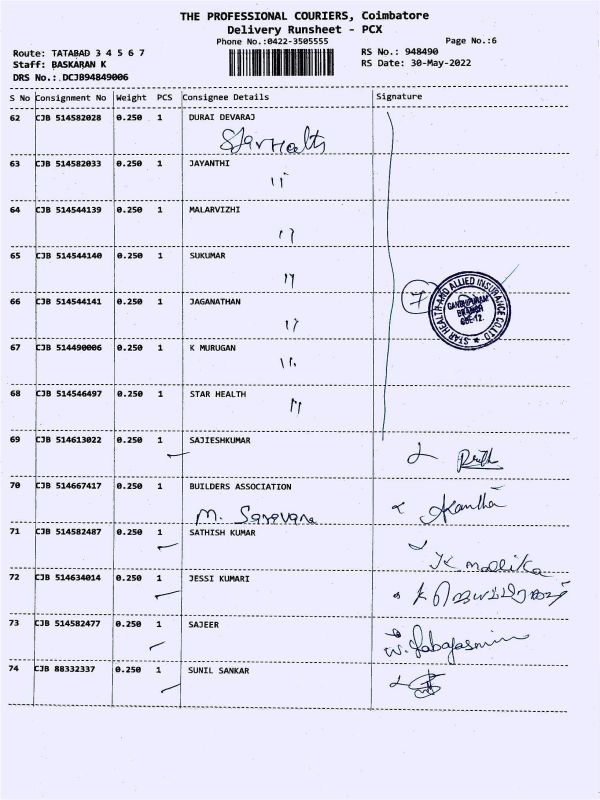 THE PROFESSIONAL COURIERS, Coimbatore
Delivery Runsheet - PCX
Phone No.:0422-3505555 Page No.:6
Route: TATABAD 3 4 5 6 7 RS No.: 948490
Staff: BASKARAN K RS Date: 30-May-2022
DRS No.:.DCJB94849006
S No Consignment No Weight PCS Consignee Details Signature
62 CJB 514582028 0.250 1 DURAI DEVARAJ
Star Health
63 CJB 514582033 0.250 1 JAYANTHI
64 CJB 514544139 0.250 1 MALARVIZHI
65 CJB 514544140 0.250 1 SUKUMAR
7
STAR HEALTH AND ALLIED INSURANCE CO.LTD
GANDHIPURAM
BRANCH
CBE-12.
66 CJB 514544141 0.250 1 JAGANATHAN
67 CJB 514490006 0.250 1 K MURUGAN
68 CJB 514546497 0.250 1 STAR HEALTH
69 CJB 514613022 0.250 1 SAJIESHKUMAR
70 CJB 514667417 0.250 1 BUILDERS ASSOCIATION
M. Saravana
71 CJB 514582487 0.250 1 SATHISH KUMAR
K mallika
72 CJB 514634014 0.250 1 JESSI KUMARI
73 CJB 514582477 0.250 1 SAJEER
74 CJB 88332337 0.250 1 SUNIL SANKAR